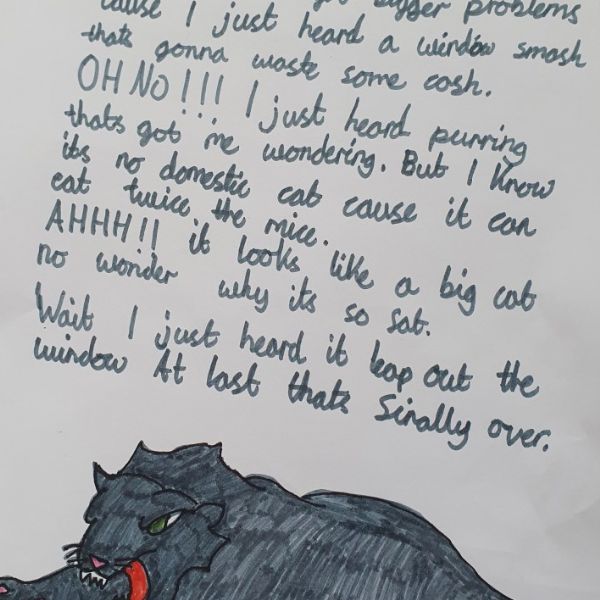 cause I just heard a window smash
bigger problems
thats gonna waste some cash.
OH NO!!! I just heard purring
thats got me wondering. But I know
its no domestic cat cause it can
eat twice the mice.
AHHH!! it looks like a big cat
no wonder why its so fat.
Wait I just heard it leap out the
window At last thats finally over.